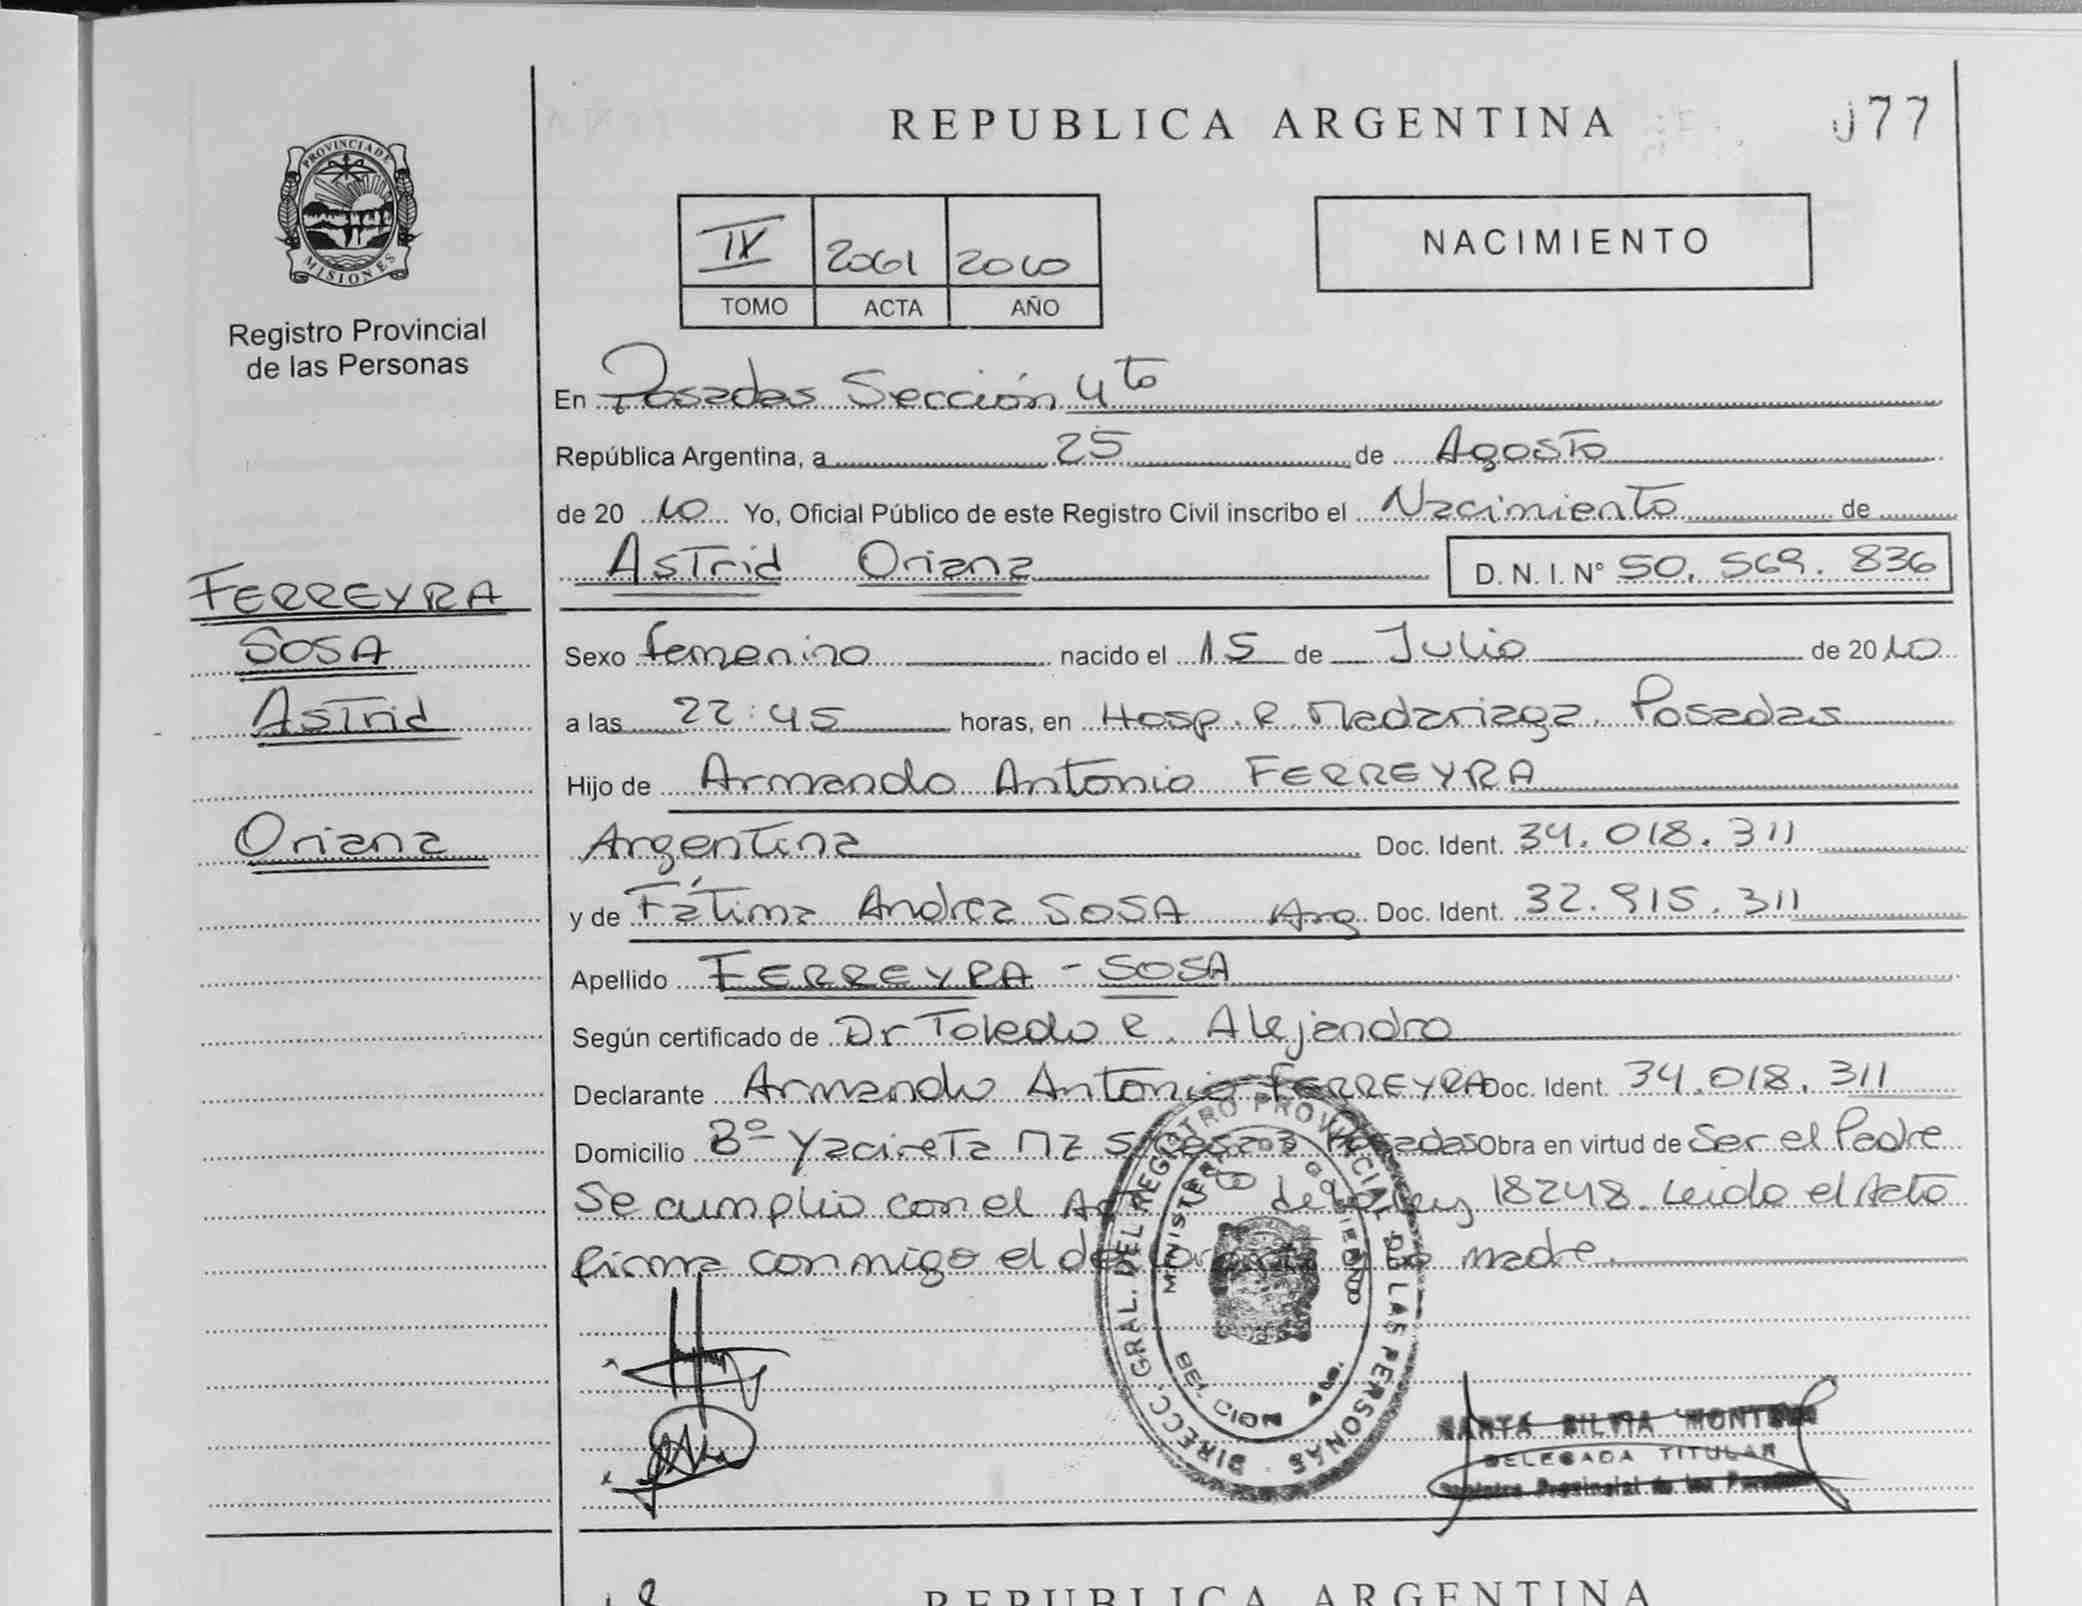 REPUBLICA ARGENTINA
077
PROVINCIA DE
MISIONES
Registro Provincial
de las Personas
IX 2061 2010
TOMO ACTA AÑO
NACIMIENTO
En Posadas Sección 4to
República Argentina, a 25 de Agosto
de 20 10 Yo, Oficial Público de este Registro Civil inscribo el Nacimiento de
Astrid Oriana D. N. I. N° 50.569.836
FERREYRA
SOSA
Astrid
Oriana
Sexo femenino nacido el 15 de Julio de 2010
a las 22:45 horas, en Hosp. R. Madariaga. Posadas
Hijo de Armando Antonio FERREYRA
Argentina Doc. Ident. 34.018.311
y de Fátima Andrea SOSA Arg Doc. Ident. 32.915.311
Apellido FERREYRA - SOSA
Según certificado de Dr Toledo R. Alejandro
Declarante Armando Antonio FERREYRA Doc. Ident. 34.018.311
Domicilio Bº Yacireta Mz S casa 3 Posadas Obra en virtud de Ser el Padre
Se cumplio con el Art 5to de la Ley 18248. Leido el Acta
firma conmigo el declarante y la madre.
DIRECC. GRAL. DEL REGISTRO PROVINCIAL DE LAS PERSONAS
MINISTERIO DE GOBIERNO
MARTA SILVIA
DELEGADA TITULAR
Registro Provincial de las Personas
REPUBLICA ARGENTINA